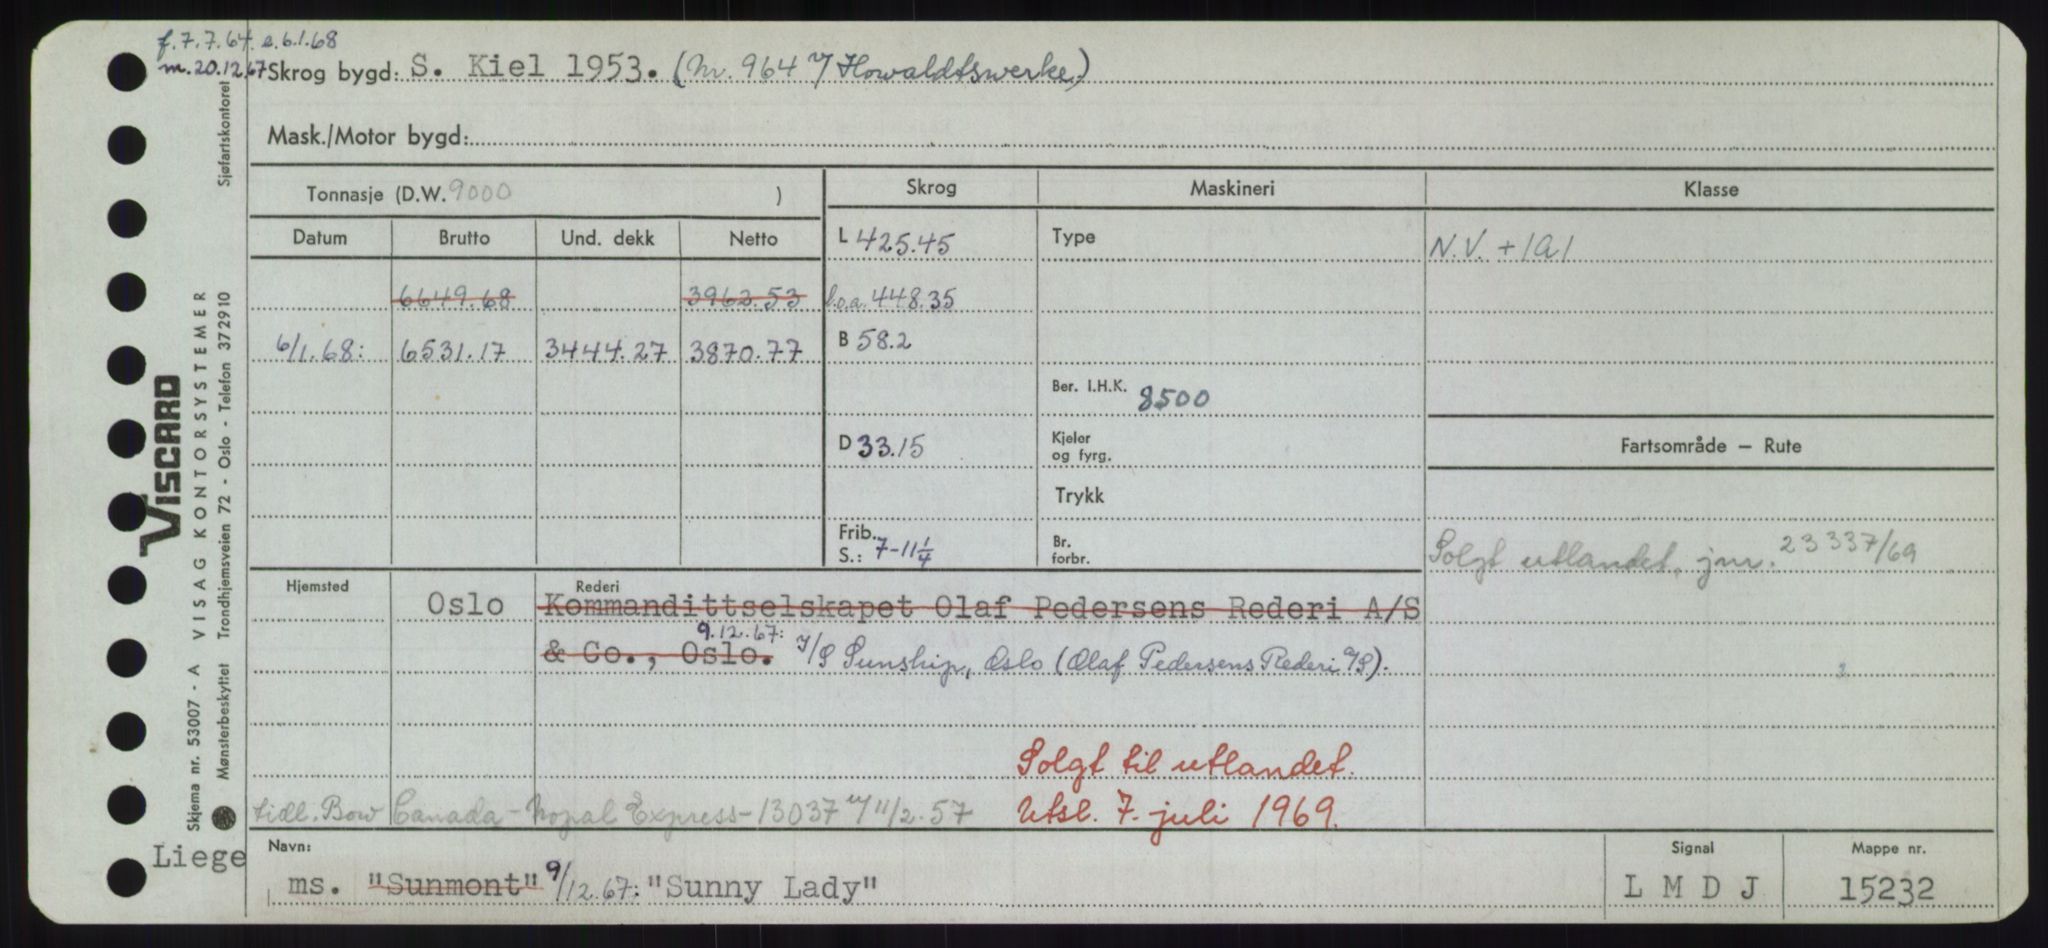 f. 7.7.64. e. 6.1.68
m. 20.12.67 Skrog bygd: S. Kiel 1953. (Nr. 964 v/ Howaldtswerke)
Mask./Motor bygd:
Tonnasje (D.W. 9000 ) Skrog Maskineri Klasse
Datum Brutto Und. dekk Netto L 425.45 Type N.V. +1A1
6649.68 3962.53 l.o.a. 448.35
6/1.68: 6531.17 3444.27 3870.77 B 58.2
Ber. I.H.K. 8500
D 33.15 Kjeler og fyrg. Fartsområde — Rute
Trykk
Frib. S.: 7-11 1/4 Br. forbr. Solgt utlandet, jnr. 23337/69
Hjemsted Oslo Rederi Kommandittselskapet Olaf Pedersens Rederi A/S
& Co., Oslo. 9.12.67: I/S Sunship, Oslo (Olaf Pedersens Rederi A/S).
Solgt til utlandet.
tidl. Bow Canada - Nopal Express - 13037 11/2.57 Utsl. 7. juli 1969.
Navn: Signal Mappe nr.
Liege
ms. "Sunmont" 9/12.67: "Sunny Lady" L M D J 15232
VISCARD
VISAG KONTORSYSTEMER
Skjema nr. 53007 - A
Sjøfartskontoret
Trondhjemsveien 72 - Oslo - Telefon 372910
Mønsterbeskyttet